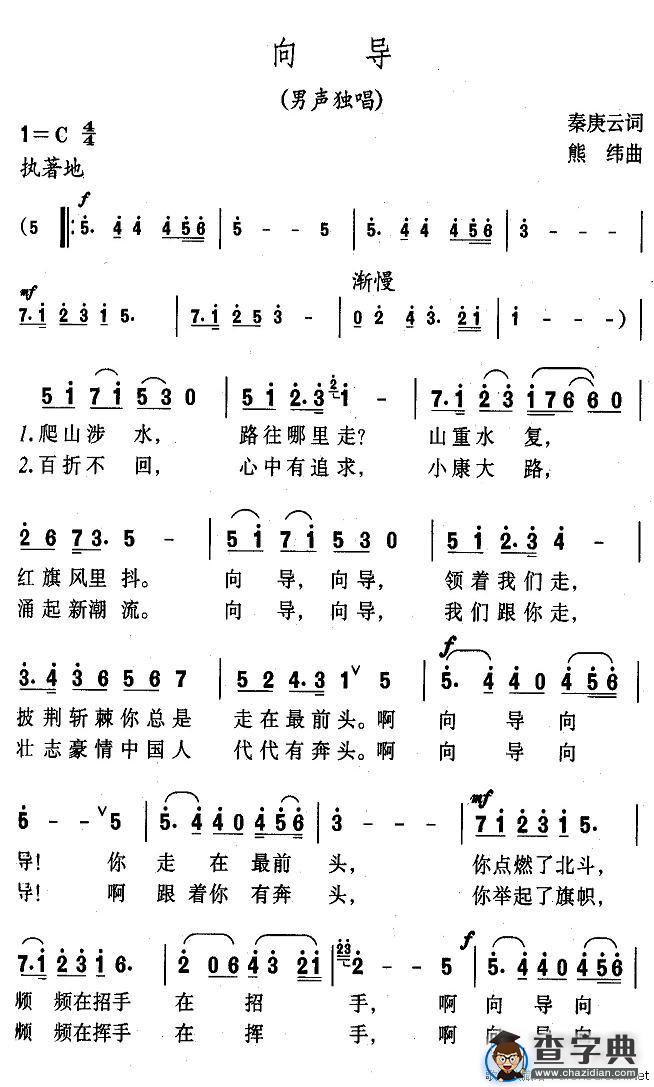 向 导
(男声独唱)
1=C 4/4
秦庚云词
执著地
熊 纬曲
f
(5 ‖: 5. 4 4 4 5 6 | 5 - - 5 | 5. 4 4 4 5 6 | 3 - - - |
mf 渐慢
7. 1 2 3 1 5. | 7. 1 2 5 3 - | 0 2 4 3. 2 1 | 1 - - - ) |
5 1 7 1 5 3 0 | 5 1 2. 3 2 1 - | 7. 1 2 3 1 7 6 6 0 |
1.爬山涉 水, 路往哪里走? 山重水 复,
2.百折不 回, 心中有追求, 小康大 路,
2 6 7 3. 5 - | 5 1 7 1 5 3 0 | 5 1 2. 3 4 - |
红旗风里抖。 向 导,向导, 领着我们走,
涌起新潮 流。 向 导,向导, 我们跟你走,
f
3. 4 3 6 5 6 7 | 5 2 4. 3 1 ∨ 5 | 5. 4 4 0 4 5 6 |
披荆斩棘你总是 走在最前头。啊 向 导向
壮志豪情中国人 代代有奔头。啊 向 导向
mf
5 - - ∨ 5 | 5. 4 4 0 4 5 6 | 3 - - - | 7 1 2 3 1 5. |
导! 你 走 在 最前 头, 你点燃了北斗,
导! 啊 跟着你 有奔 头, 你举起了旗帜,
f
7. 1 2 3 1 6. | 2 0 6 4 3 3 2 1 | 2 3 2 - - 5 | 5. 4 4 0 4 5 6 |
频 频在招手 在 招 手, 啊 向 导向
频 频在挥手 在 挥 手, 啊 向 导向
查字典
www.chazidian.com